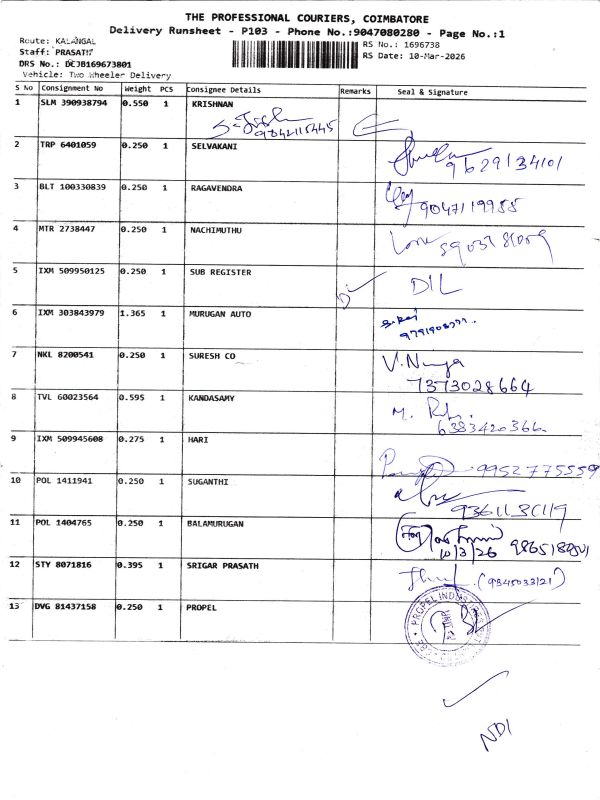 THE PROFESSIONAL COURIERS, COIMBATORE
Delivery Runsheet - P103 - Phone No.:9047080280 - Page No.:1
Route: KALANGAL
Staff: PRASATH
DRS No.: DCJB169673801
Vehicle: Two Wheeler Delivery
RS No.: 1696738
RS Date: 10-Mar-2026
S No Consignment No Weight PCS Consignee Details Remarks Seal & Signature
1 SLM 390938794 0.550 1 KRISHNAN
9842115445
2 TRP 6401059 0.250 1 SELVAKANI
9629134101
3 BLT 100330839 0.250 1 RAGAVENDRA
9047119955
4 MTR 2738447 0.250 1 NACHIMUTHU
5 IXM 509950125 0.250 1 SUB REGISTER
DIL
6 IXM 303843979 1.365 1 MURUGAN AUTO
7 NKL 8200541 0.250 1 SURESH CO
7373028664
8 TVL 60023564 0.595 1 KANDASAMY
6383420366
9 IXM 509945608 0.275 1 HARI
9952775559
10 POL 1411941 0.250 1 SUGANTHI
11 POL 1404765 0.250 1 BALAMURUGAN
10/3/26
12 STY 8071816 0.395 1 SRIGAR PRASATH
13 DVG 81437158 0.250 1 PROPEL
PROPEL
NDI